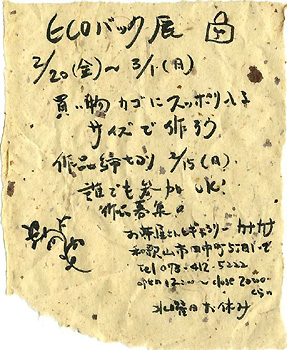 ECOバック展
2/20(金)〜3/1(日)
買い物カゴにスッポリ入る
サイズで作ろう
作品締切り 2/15(日)
誰でも参加 OK!
作品募集。
お茶屋さんギャラリー
和歌山市田中町5丁目
tel 073-412-5222
open 12:00〜close 20:00
水曜日お休み